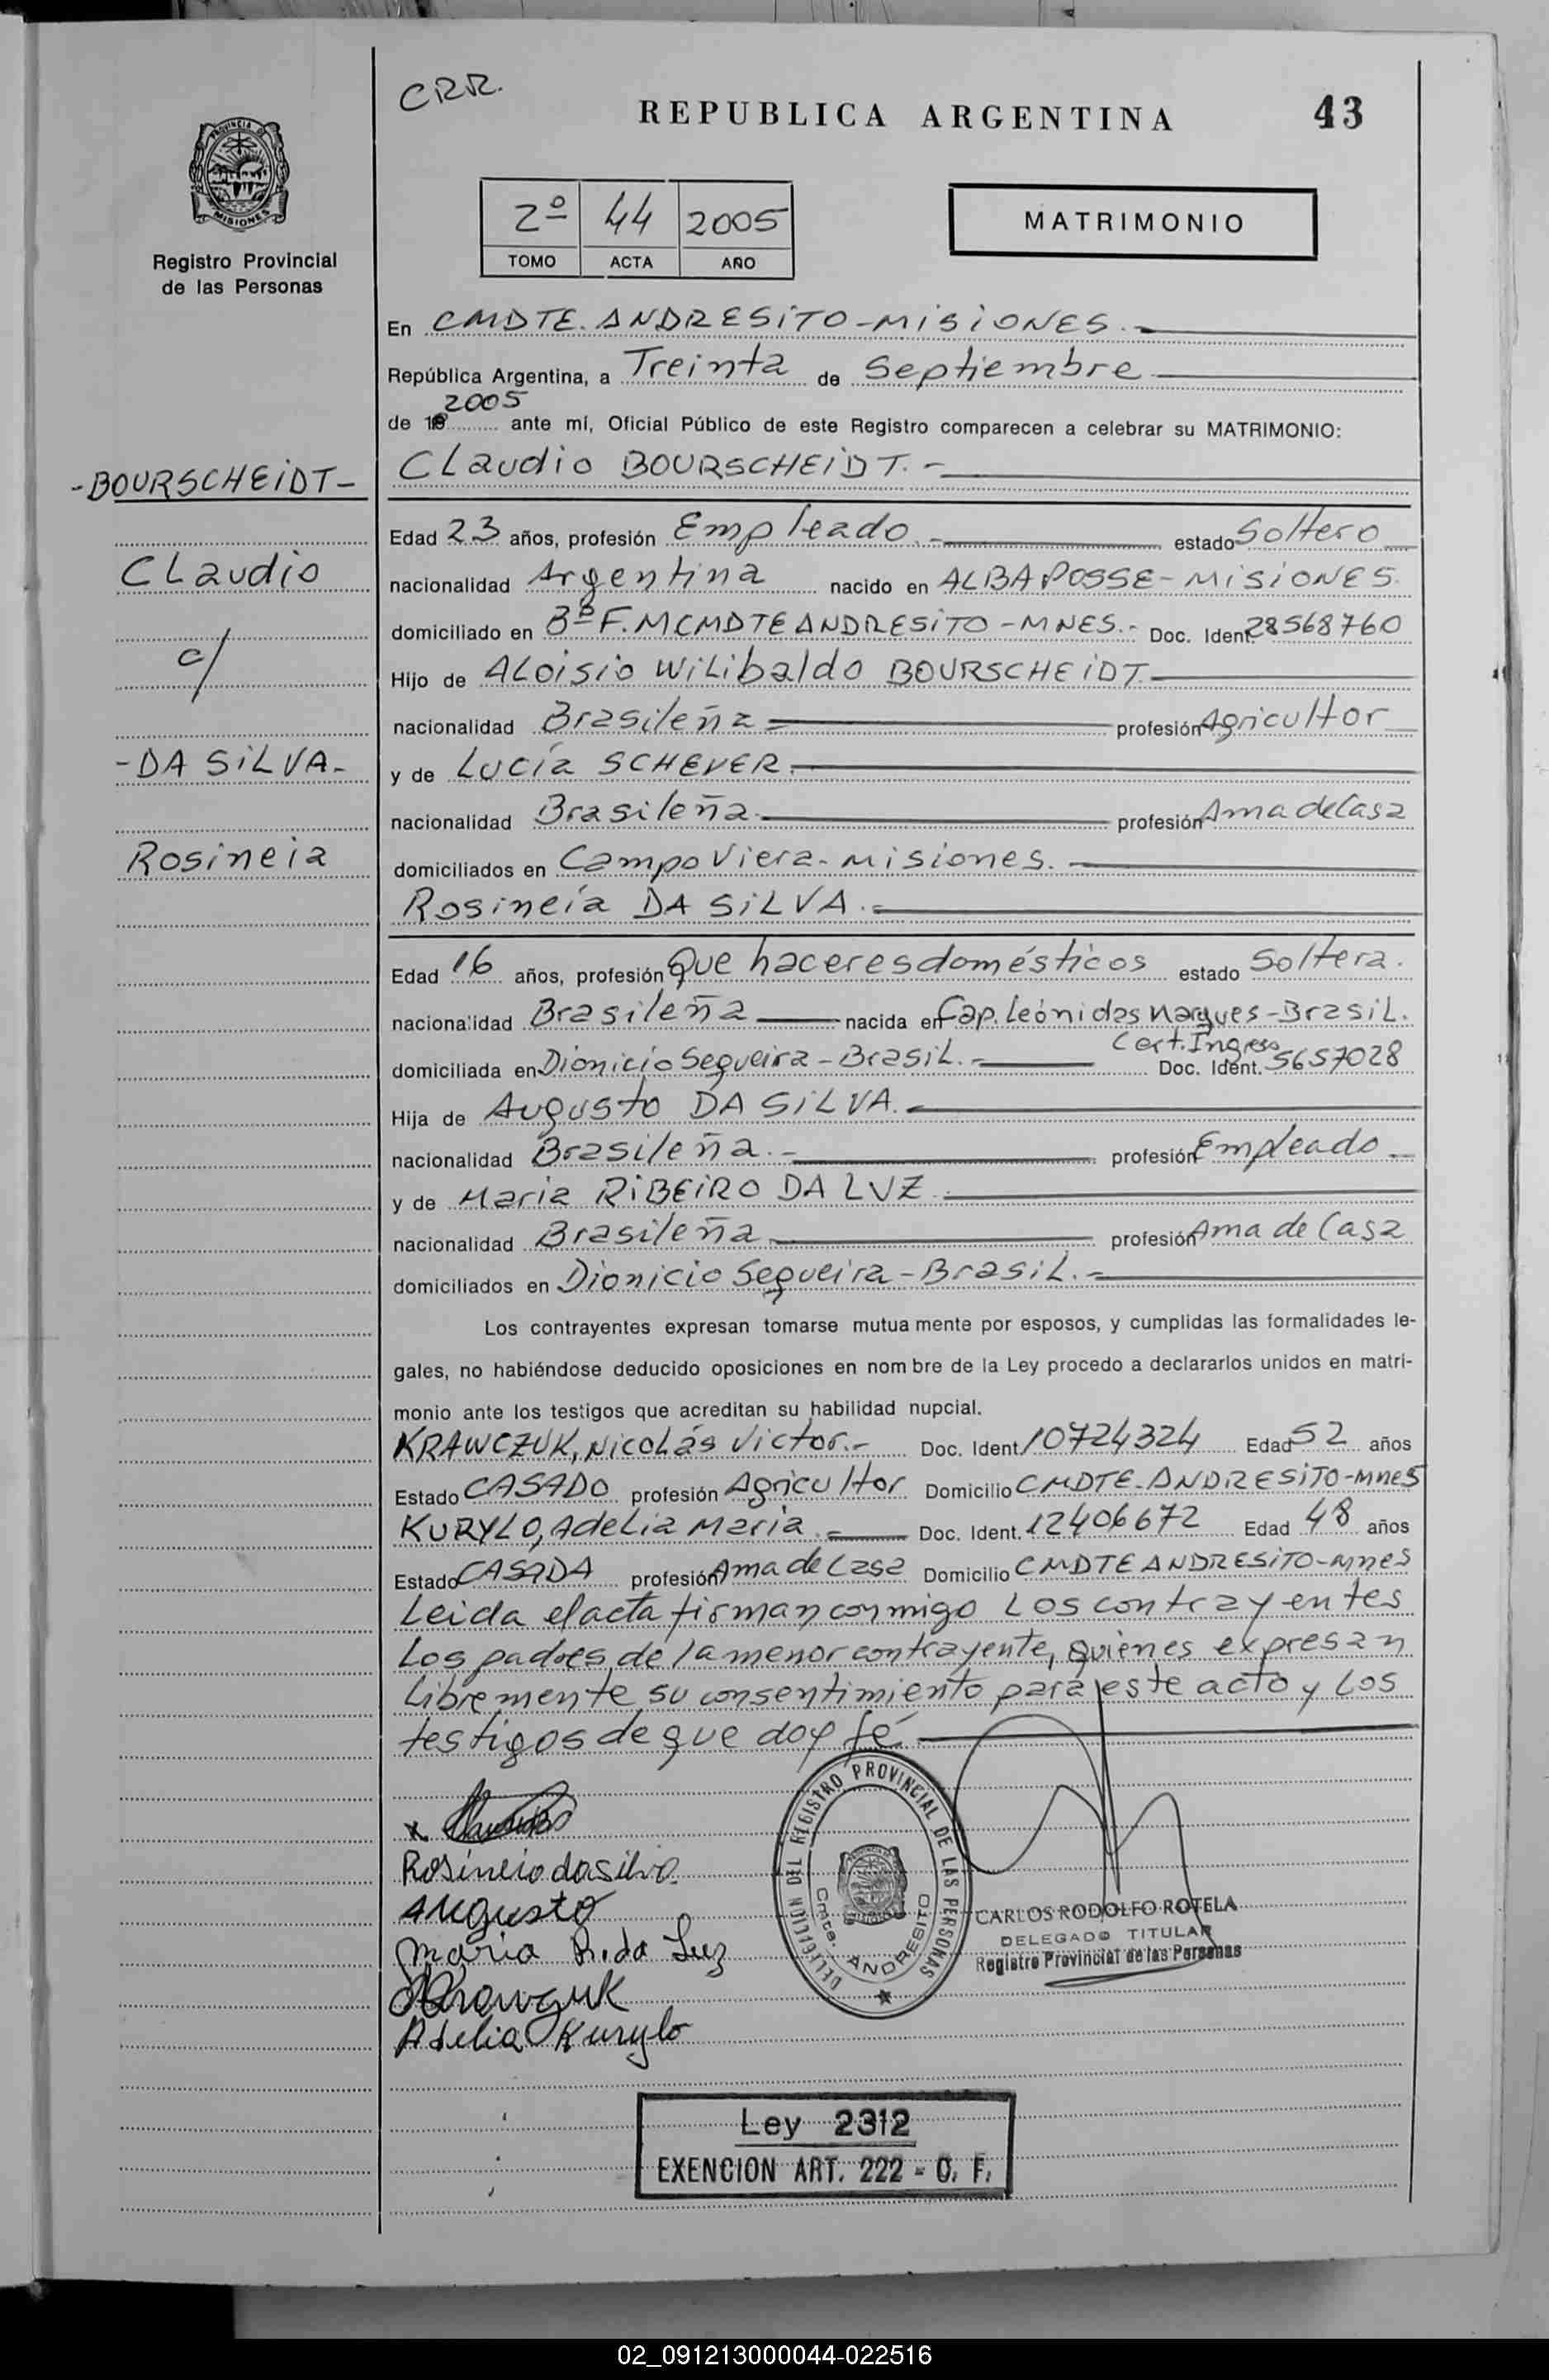 CRR.
REPUBLICA ARGENTINA
43
PROVINCIA DE
MISIONES
Registro Provincial
de las Personas
2º 44 2005
TOMO ACTA AÑO
MATRIMONIO
En CMDTE. ANDRESITO-MISIONES.-
República Argentina, a Treinta de Septiembre
2005
de 19 ante mí, Oficial Público de este Registro comparecen a celebrar su MATRIMONIO:
-BOURSCHEIDT-
Claudio BOURSCHEIDT.-
Edad 23 años, profesión Empleado.- estado Soltero
Claudio
nacionalidad Argentina nacido en ALBA POSSE-MISIONES.
domiciliado en Bº F.M CMDTE ANDRESITO-MNES.- Doc. Ident. 28568760
c/
Hijo de ALOISIO WILIBALDO BOURSCHEIDT.
nacionalidad Brasileña profesión Agricultor
-DA SILVA-
y de Lucía SCHEVER.
nacionalidad Brasileña profesión Ama de Casa
Rosineia
domiciliados en Campo Viera-Misiones.
Rosineía DA SILVA.-
Edad 16 años, profesión Que haceres domésticos estado Soltera.
nacionalidad Brasileña nacida en Cap. Leónidas Marques-Brasil.
Cert. Ingreso
domiciliada en Dionicio Seqveira-Brasil.- Doc. Ident. 5657028
Hija de Augusto DA SILVA.
nacionalidad Brasileña.- profesión Empleado
y de Maria RIBEIRO DA LUZ.
nacionalidad Brasileña profesión Ama de Casa
domiciliados en Dionicio Seqveira-Brasil.-
Los contrayentes expresan tomarse mutua mente por esposos, y cumplidas las formalidades le-
gales, no habiéndose deducido oposiciones en nom bre de la Ley procedo a declararlos unidos en matri-
monio ante los testigos que acreditan su habilidad nupcial.
KRAWCZUK, Nicolás Victor.- Doc. Ident. 10724324 Edad 52 años
Estado CASADO profesión Agricultor Domicilio CMDTE-ANDRESITO-Mnes
KURYLO, Adelia Maria.- Doc. Ident. 12406672 Edad 48 años
Estado CASADA profesión Ama de Casa Domicilio CMDTE ANDRESITO-Mnes
Leida el acta firman conmigo Los contrayentes
Los padres de la menor contrayente, quienes expresan
Libremente su consentimiento para este acto y Los
testigos de que doy fé
x
Rosineia da silva.
Augusto
Maria R. da Luz
Krawczuk
Adelia Kurylo
DELEGACION DEL REGISTRO PROVINCIAL DE LAS PERSONAS
Cmte. ANDRESITO
CARLOS RODOLFO ROTELA
DELEGADO TITULAR
Registro Provincial de las Personas
Ley 2312
EXENCION ART. 222 - C. F.
02_091213000044-022516